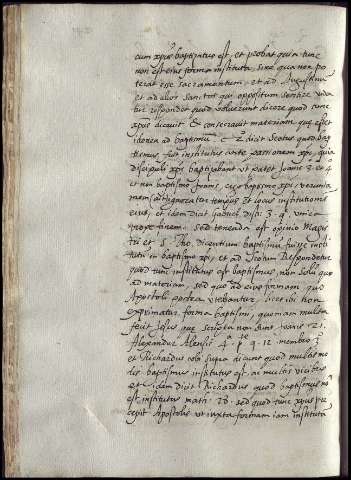 cum xpus baptizatus est, et probat quia tunc
non est eius forma instituta, sine qua non po
terat esse sacramentum, et ad Augustinum
et ad alios sanctos qui oppositum sentire viden
tur respondet quod voluerunt dicere quod tunc
xpus dicavit & consecravit materiam que esset
idonea ad baptismum. dicit Scotus quod bap
tismus fuit institutus ante passionem xpi, quia
discipuli xpi baptizabant ut patet Joanis 3. et 4
et non baptismo Joanis, ergo baptismo xpi, verum ta
men tempus et locus institutionis
eius, et idem dicit Gabriel dist. 3. q. unica
prope finem. Sed tenenda est opinio Magis
tri et S. Tho. dicentium baptismum fuisse insti
tutum in baptismo xpi, et ad Scotum Respondetur
quod tunc institutus est baptismus, non solum quo
ad materiam, sed quo ad eius formam, qua
Apostoli postea utebantur, licet ibi non
exprimatur forma baptismi, quoniam multa
fecit Jesus que scripta non sunt Joanis 21.
Alexander Alensis 4ª pte q. 12 membro 3º
et Richardus ubi supra dicunt quod multis mo
dis baptismus institutus est, ac multis vicibus
et idem dicit Richardus quod baptismus
est institutus math. 28. sed quod tunc xpus pre
cepit Apostolis ut iuxta formam iam institutam